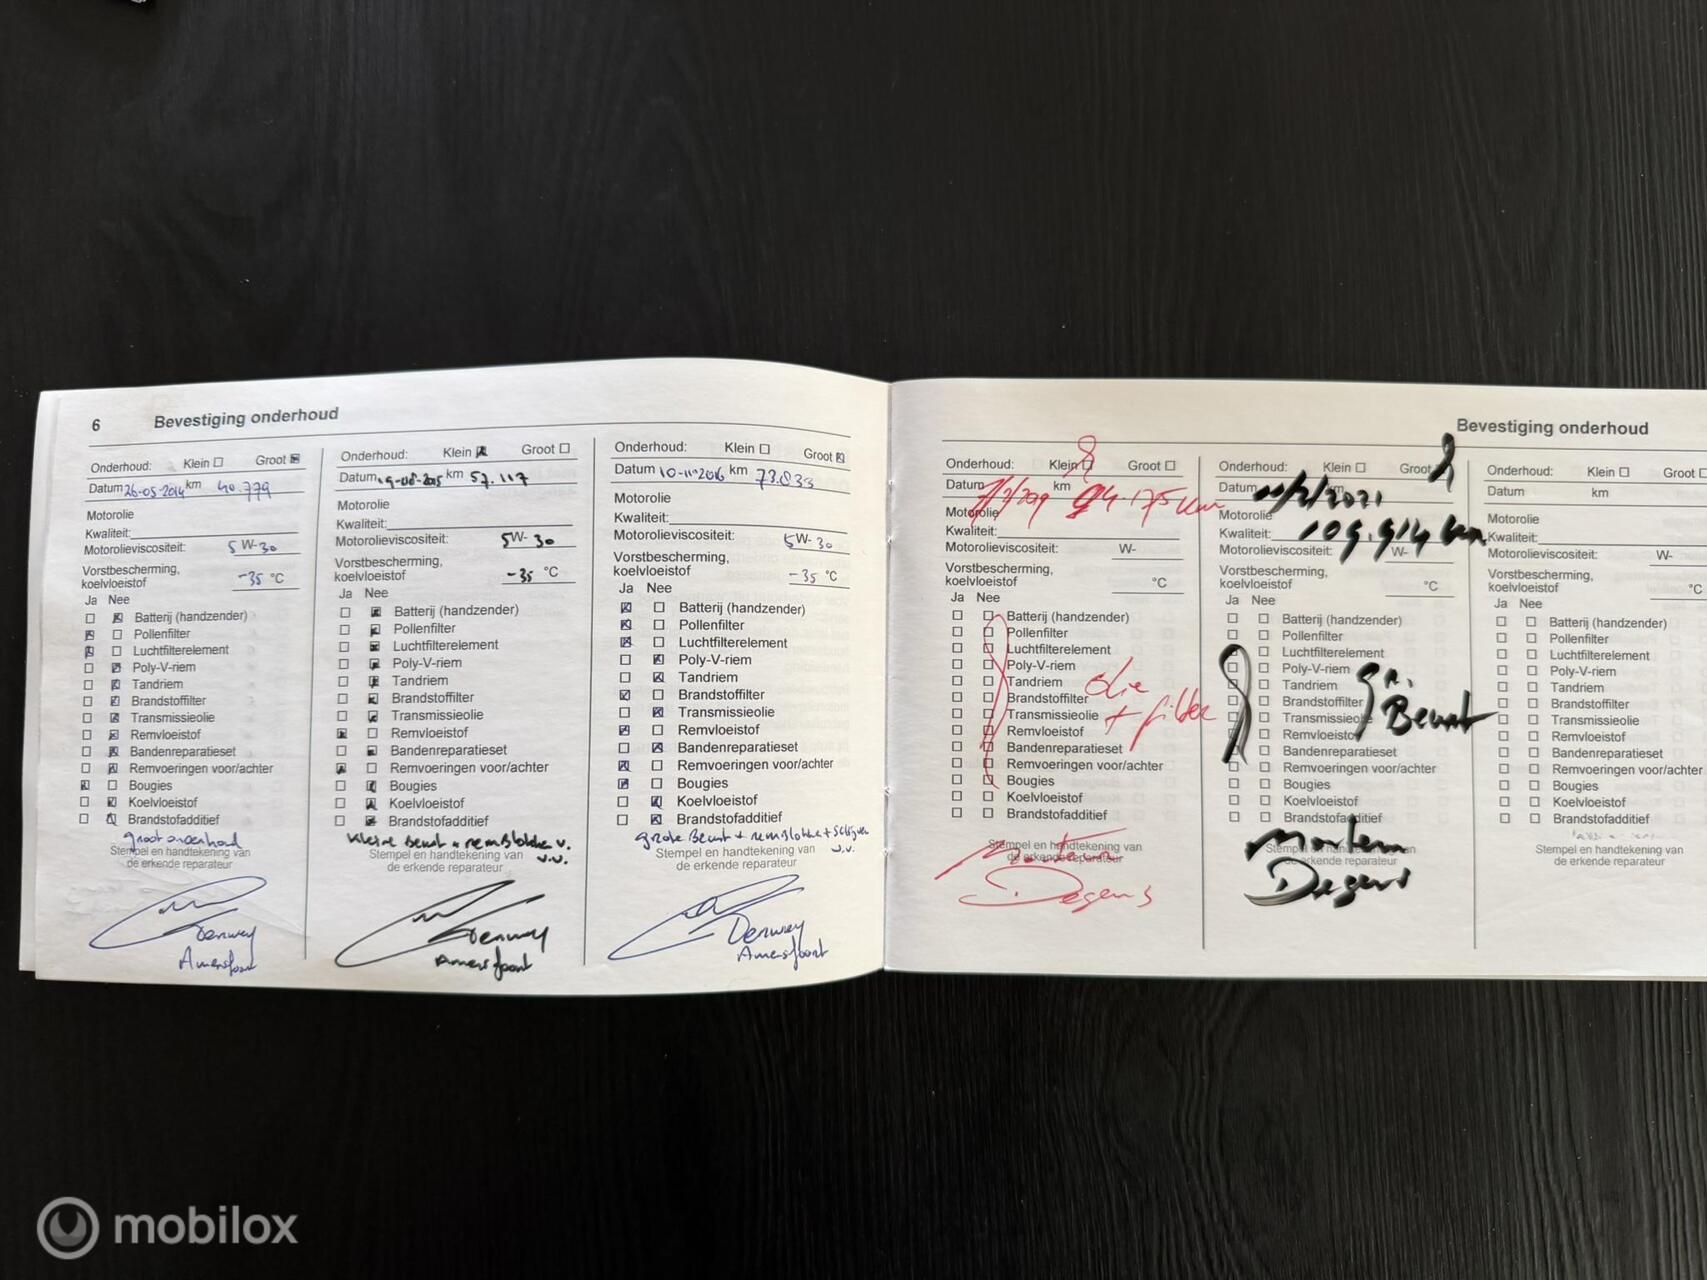 6 Bevestiging onderhoud
Onderhoud: Klein Groot
Datum 26-05-2014 km 40.779
Motorolie
Kwaliteit:
Motorolieviscositeit: 5 W- 30
Vorstbescherming,
koelvloeistof -35 °C
Ja Nee
Batterij (handzender)
Pollenfilter
Luchtfilterelement
Poly-V-riem
Tandriem
Brandstoffilter
Transmissieolie
Remvloeistof
Bandenreparatieset
Remvoeringen voor/achter
Bougies
Koelvloeistof
Brandstofadditief
groot onderhoud
Stempel en handtekening van
de erkende reparateur
Amersfoort
Onderhoud: Klein Groot
Datum 19-08-2015 km 57.117
Motorolie
Kwaliteit:
Motorolieviscositeit: 5W- 30
Vorstbescherming,
koelvloeistof -35 °C
Ja Nee
Batterij (handzender)
Pollenfilter
Luchtfilterelement
Poly-V-riem
Tandriem
Brandstoffilter
Transmissieolie
Remvloeistof
Bandenreparatieset
Remvoeringen voor/achter
Bougies
Koelvloeistof
Brandstofadditief
kleine Beurt + remblokken v.
Stempel en handtekening van
de erkende reparateur
Amersfoort
Onderhoud: Klein Groot
Datum 10-11-2016 km 73.833
Motorolie
Kwaliteit:
Motorolieviscositeit: 5W- 30
Vorstbescherming,
koelvloeistof -35 °C
Ja Nee
Batterij (handzender)
Pollenfilter
Luchtfilterelement
Poly-V-riem
Tandriem
Brandstoffilter
Transmissieolie
Remvloeistof
Bandenreparatieset
Remvoeringen voor/achter
Bougies
Koelvloeistof
Brandstofadditief
grote Beurt + remblokke + Schijven
Stempel en handtekening van
de erkende reparateur
Amersfoort
Bevestiging onderhoud
Onderhoud: Klein Groot
Datum km
7/2/2019 94.175 km
Motorolie
Kwaliteit:
Motorolieviscositeit: W-
Vorstbescherming,
koelvloeistof °C
Ja Nee
Batterij (handzender)
Pollenfilter
Luchtfilterelement
Poly-V-riem
Tandriem
Brandstoffilter
Transmissieolie
Remvloeistof
Bandenreparatieset
Remvoeringen voor/achter
Bougies
Koelvloeistof
Brandstofadditief
olie
+ filter
Stempel en handtekening van
de erkende reparateur
Maarten
Degens
Onderhoud: Klein Groot
Datum km
/2/2021
Motorolie
Kwaliteit: 109.914 km
Motorolieviscositeit: W-
Vorstbescherming,
koelvloeistof °C
Ja Nee
Batterij (handzender)
Pollenfilter
Luchtfilterelement
Poly-V-riem
Tandriem
Brandstoffilter
Transmissieolie
Remvloeistof
Bandenreparatieset
Remvoeringen voor/achter
Bougies
Koelvloeistof
Brandstofadditief
gr.
Beurt
Stempel en handtekening van
de erkende reparateur
Maarten
Degens
Onderhoud: Klein Groot
Datum km
Motorolie
Kwaliteit:
Motorolieviscositeit: W-
Vorstbescherming,
koelvloeistof °C
Ja Nee
Batterij (handzender)
Pollenfilter
Luchtfilterelement
Poly-V-riem
Tandriem
Brandstoffilter
Transmissieolie
Remvloeistof
Bandenreparatieset
Remvoeringen voor/achter
Bougies
Koelvloeistof
Brandstofadditief
Stempel en handtekening van
de erkende reparateur
mobilox